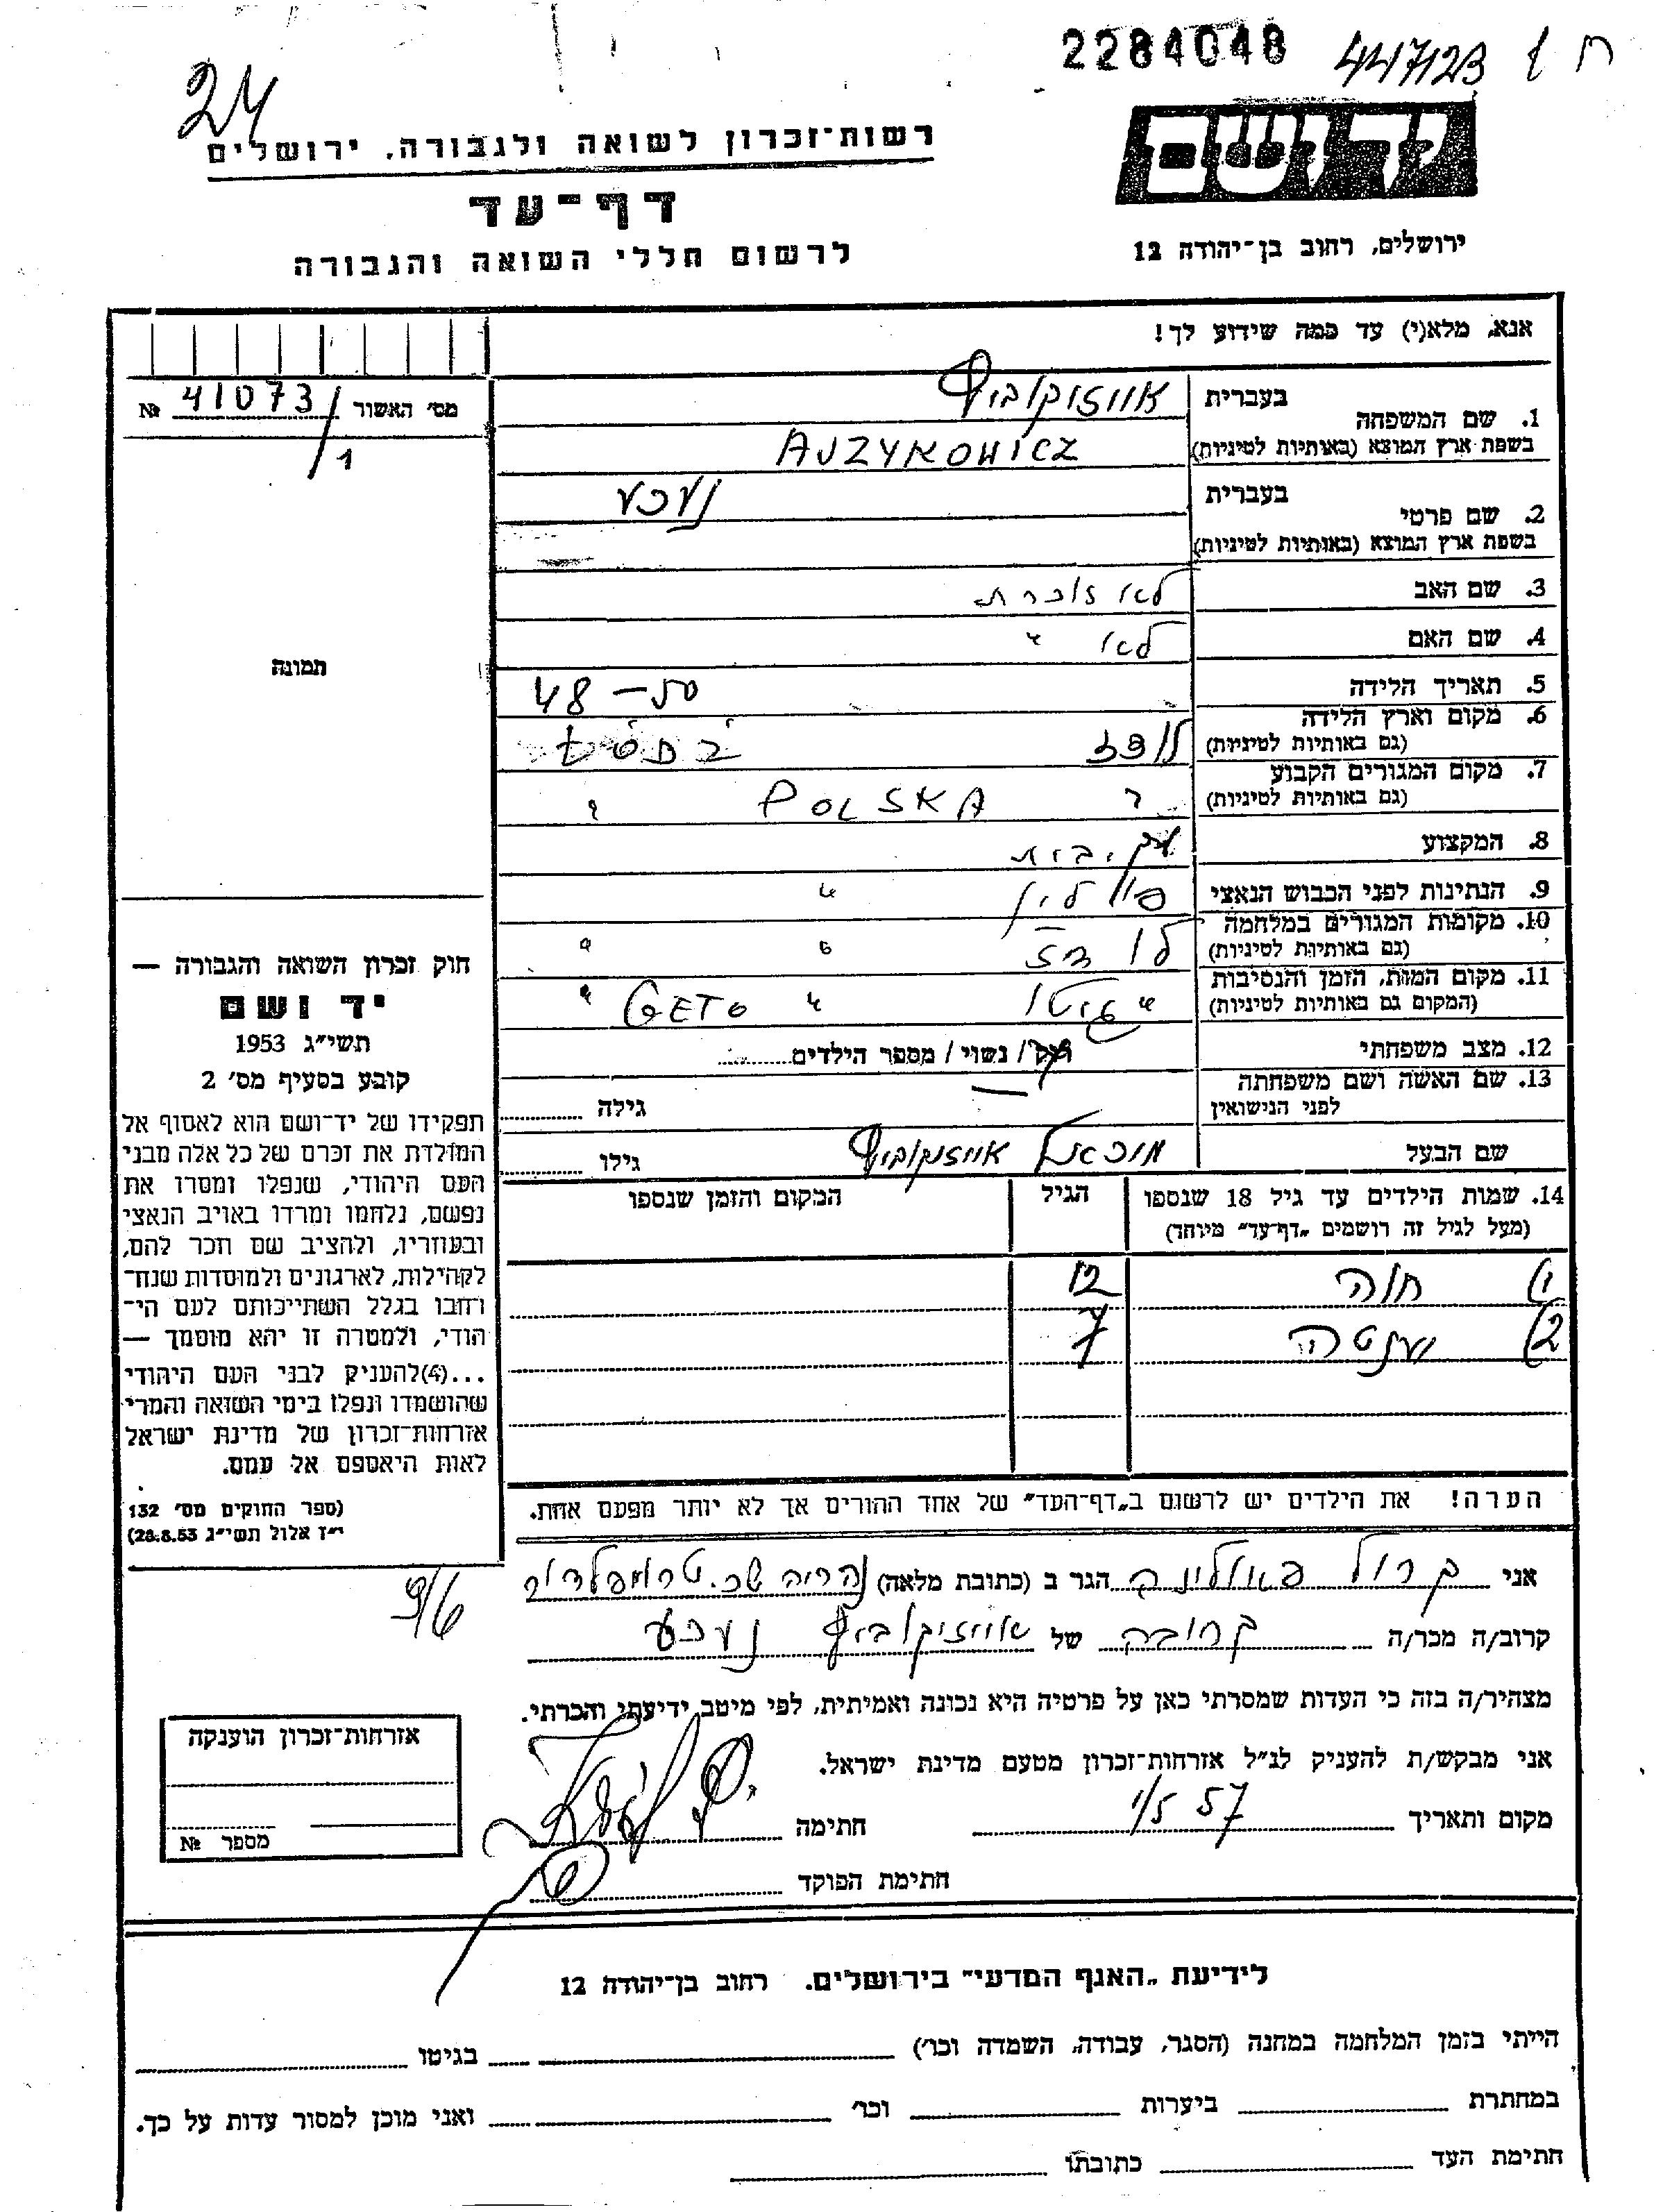 2284048 447/23
24
יד ושם
רשות־זכרון לשואה ולגבורה, ירושלים
דף־עד
לרשום חללי השואה והגבורה
ירושלים, רחוב בן־יהודה 12
אנא, מלא(י) עד כמה שידוע לך!
מס׳ האשור 41073/1 №
1. שם המשפחה
בעברית אווזיקוביץ
בשפת ארץ המוצא (באותיות לטיניות) AJZYKOWICZ
2. שם פרטי
בעברית נעכע
בשפת ארץ המוצא (באותיות לטיניות)
3. שם האב לא זוכרת
4. שם האם לא "
5. תאריך הלידה 48 – 50
6. מקום וארץ הלידה
(גם באותיות לטיניות) לודז
7. מקום המגורים הקבוע
(גם באותיות לטיניות) " POLSKA "
8. המקצוע עק. בית
9. הנתינות לפני הכבוש הנאצי פולין "
10. מקומות המגורים במלחמה
(גם באותיות לטיניות) לודז " "
11. מקום המות, הזמן והנסיבות
(המקום גם באותיות לטיניות) " גיטו " GETO "
12. מצב משפחתי רוק / נשוי / מספר הילדים
13. שם האשה ושם משפחתה
לפני הנישואין — גילה
שם הבעל מיכאל אווזיקוביץ גילו
14. שמות הילדים עד גיל 18 שנספו הגיל המקום והזמן שנספו
(מעל לגיל זה רושמים „דף־עד״ מיוחד)
1) חוה 12
2) יענטה 7
תמונה
חוק זכרון השואה והגבורה —
יד ושם
תשי״ג 1953
קובע בסעיף מס׳ 2
תפקידו של יד־ושם הוא לאסוף אל
המולדת את זכרם של כל אלה מבני
העם היהודי, שנפלו ומסרו את
נפשם, נלחמו ומרדו באויב הנאצי
ובעוזריו, ולהציב שם וזכר להם,
לקהילות, לארגונים ולמוסדות שנח־
רבו בגלל השתייכותם לעם הי־
הודי, ולמטרה זו יהא מוסמך —
...(4)להעניק לבני העם היהודי
שהושמדו ונפלו בימי השואה והמרי
אזרחות־זכרון של מדינת ישראל
לאות היאספם אל עמם.
(ספר החוקים מס׳ 132
י״ז אלול תשי״ג 28.8.53)
הערה! את הילדים יש לרשום ב„דף־העד״ של אחד ההורים אך לא יותר מפעם אחת.
אני קרול פאולינה הגר ב (כתובת מלאה) נהריה שכ. טרומפלדור
קרוב/ה מכר/ה קרובה של אווזיקוביץ נעכע
מצהיר/ה בזה כי העדות שמסרתי כאן על פרטיה היא נכונה ואמיתית, לפי מיטב ידיעתי והכרתי.
אני מבקש/ת להעניק לנ״ל אזרחות־זכרון מטעם מדינת ישראל.
מקום ותאריך 1/5 57 חתימה
חתימת הפוקד
אזרחות־זכרון הוענקה
מספר №
לידיעת „האגף המדעי״ בירושלים. רחוב בן־יהודה 12
הייתי בזמן המלחמה במחנה (הסגר, עבודה, השמדה וכו׳) בגיטו
במחתרת ביערות וכו׳ ואני מוכן למסור עדות על כך.
חתימת העד כתובתו